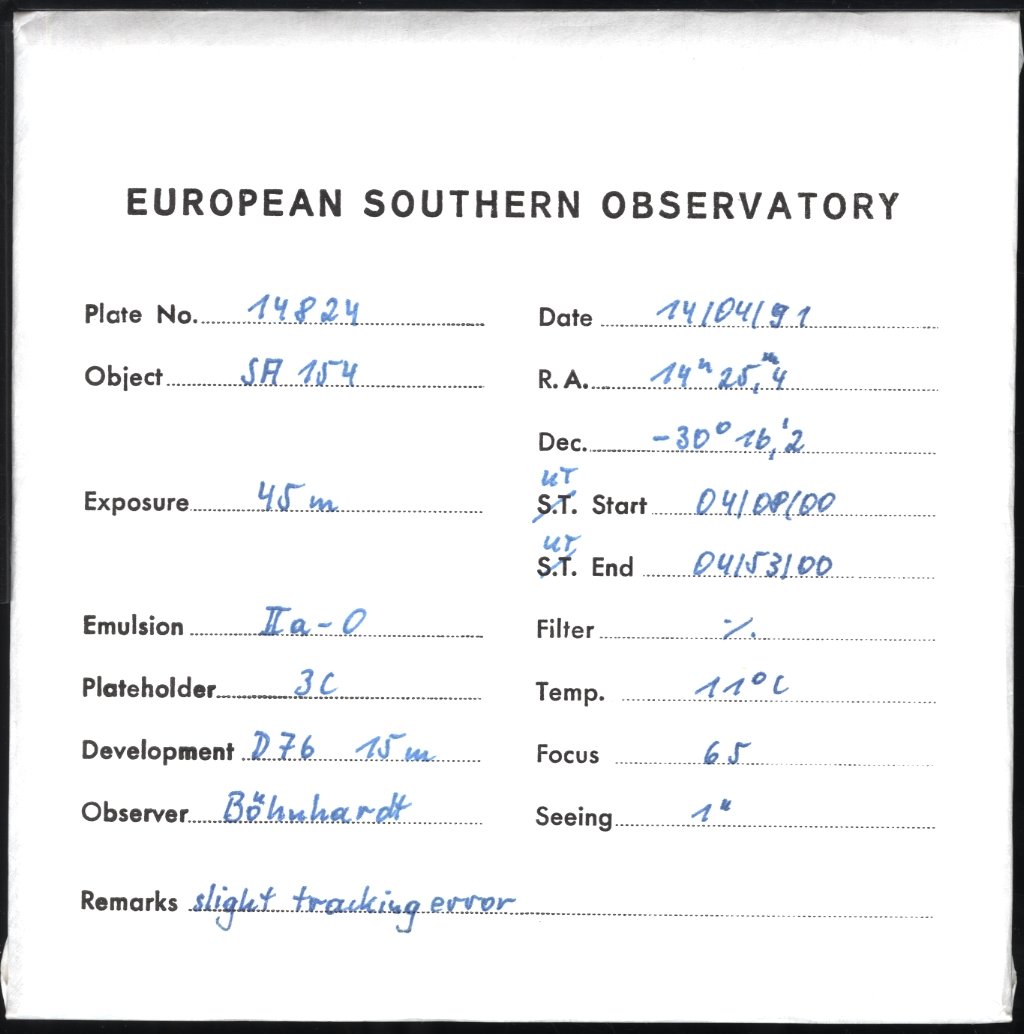 EUROPEAN SOUTHERN OBSERVATORY
Plate No. 14824 Date 14/04/91
Object SA 154 R. A. 14ʰ 25,ᵐ4
Dec. -30° 16,'2
UT
Exposure 45 m S.T. Start 04/08/00
UT
S.T. End 04/53/00
Emulsion IIa-O Filter ·/.
Plateholder 3C Temp. 11°C
Development D76 15 m Focus 65
Observer Böhnhardt Seeing 1"
Remarks slight tracking error